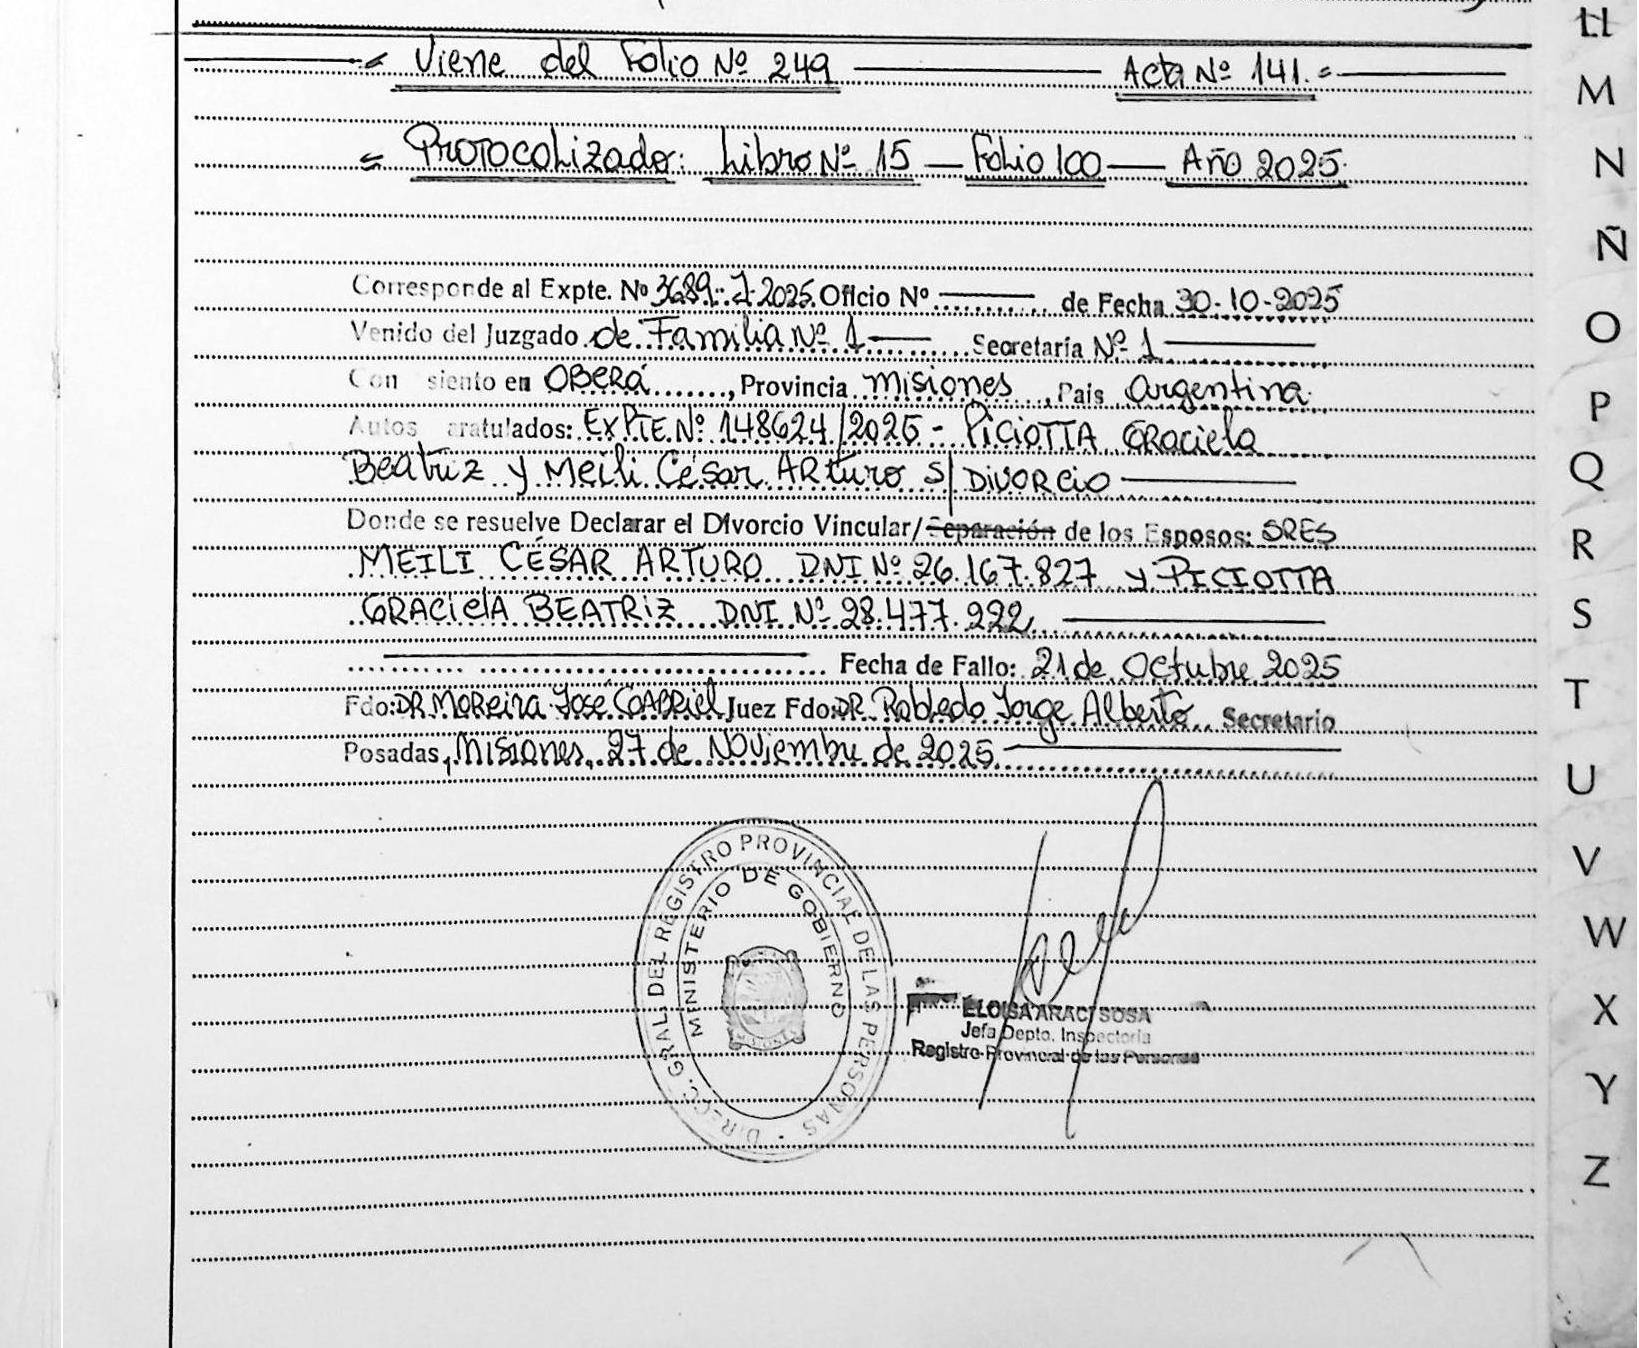 Viene del Folio Nº 249 Acta Nº 141.=
Protocolizado: Libro Nº 15 — Folio 100 — Año 2025.
Corresponde al Expte. Nº 3689-J-2025 Oficio Nº de Fecha 30-10-2025
Venido del Juzgado de Familia Nº 1 Secretaría Nº 1
Con siento en OBERÁ, Provincia Misiones, País Argentina
Autos aratulados: EXPTE. Nº 148624/2025 - PICIOTTA Graciela
Beatriz y Meili César Arturo S/ DIVORCIO
Donde se resuelve Declarar el Divorcio Vincular/Separación de los Esposos: SRES
MEILI CÉSAR ARTURO DNI Nº 26.167.827 y PICIOTTA
GRACIELA BEATRIZ DNI Nº 28.477.222
Fecha de Fallo: 21 de Octubre 2025
Fdo: DR Moreira José Gabriel Juez Fdo: DR. Robledo Jorge Alberto Secretario
Posadas, Misiones, 27 de Noviembre de 2025
DIRECC. GRAL. DEL REGISTRO PROVINCIAL DE LAS PERSONAS
MINISTERIO DE GOBIERNO
ELOISA ARACI SOSA
Jefa Depto. Inspectoria
Registro Provincial de las Personas
LL
M
N
Ñ
O
P
Q
R
S
T
U
V
W
X
Y
Z